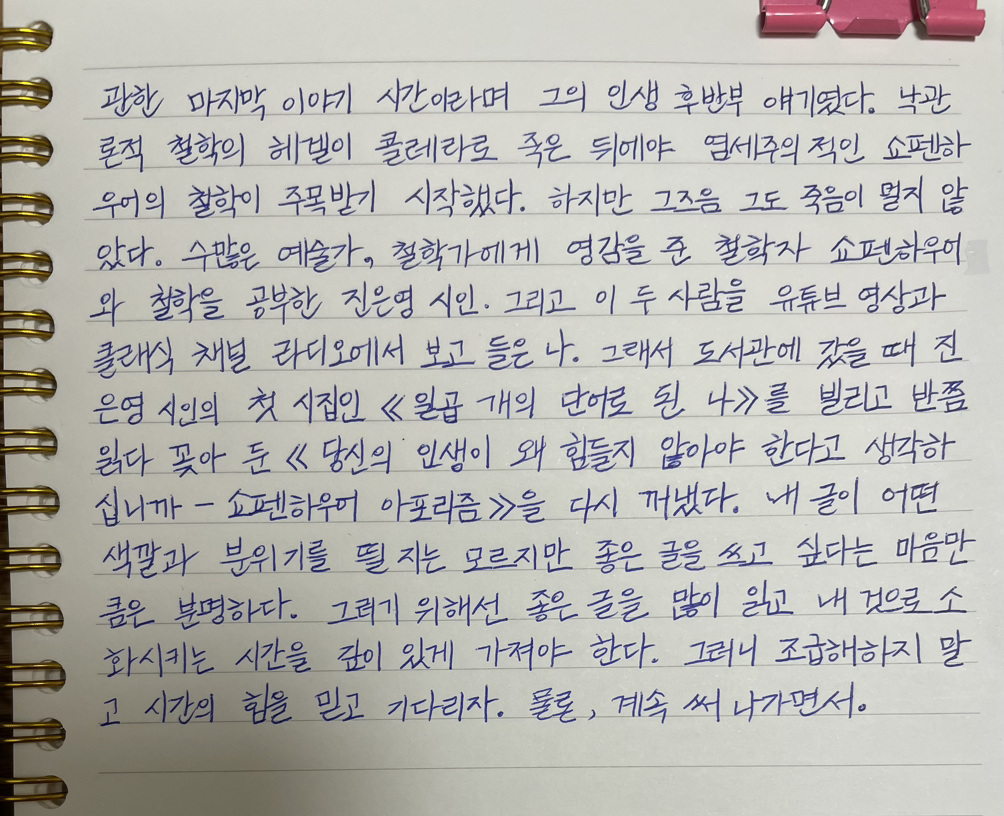 관한 마지막 이야기 시간이라며 그의 인생 후반부 얘기였다. 낙관
론적 철학의 헤겔이 콜레라로 죽은 뒤에야 염세주의적인 쇼펜하
우어의 철학이 주목받기 시작했다. 하지만 그즈음 그도 죽음이 멀지 않
았다. 수많은 예술가, 철학가에게 영감을 준 철학자 쇼펜하우어
와 철학을 공부한 진은영 시인. 그리고 이 두 사람을 유튜브 영상과
클래식 채널 라디오에서 보고 들은 나. 그래서 도서관에 갔을 때 진
은영 시인의 첫 시집인 《일곱 개의 단어로 된 나》를 빌리고 반쯤
읽다 꽂아 둔 《당신의 인생이 왜 힘들지 않아야 한다고 생각하
십니까 - 쇼펜하우어 아포리즘》을 다시 꺼냈다. 내 글이 어떤
색깔과 분위기를 띌 지는 모르지만 좋은 글을 쓰고 싶다는 마음만
큼은 분명하다. 그러기 위해선 좋은 글을 많이 읽고 내 것으로 소
화시키는 시간을 깊이 있게 가져야 한다. 그러니 조급해하지 말
고 시간의 힘을 믿고 기다리자. 물론, 계속 써 나가면서.